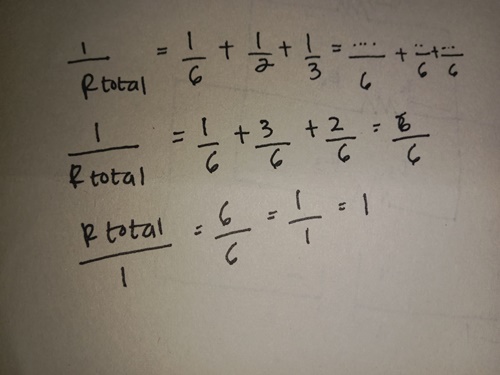 1/R total = 1/6 + 1/2 + 1/3 = ..../6 + ../6 + .../6
1/R total = 1/6 + 3/6 + 2/6 = 6/6
R total/1 = 6/6 = 1/1 = 1